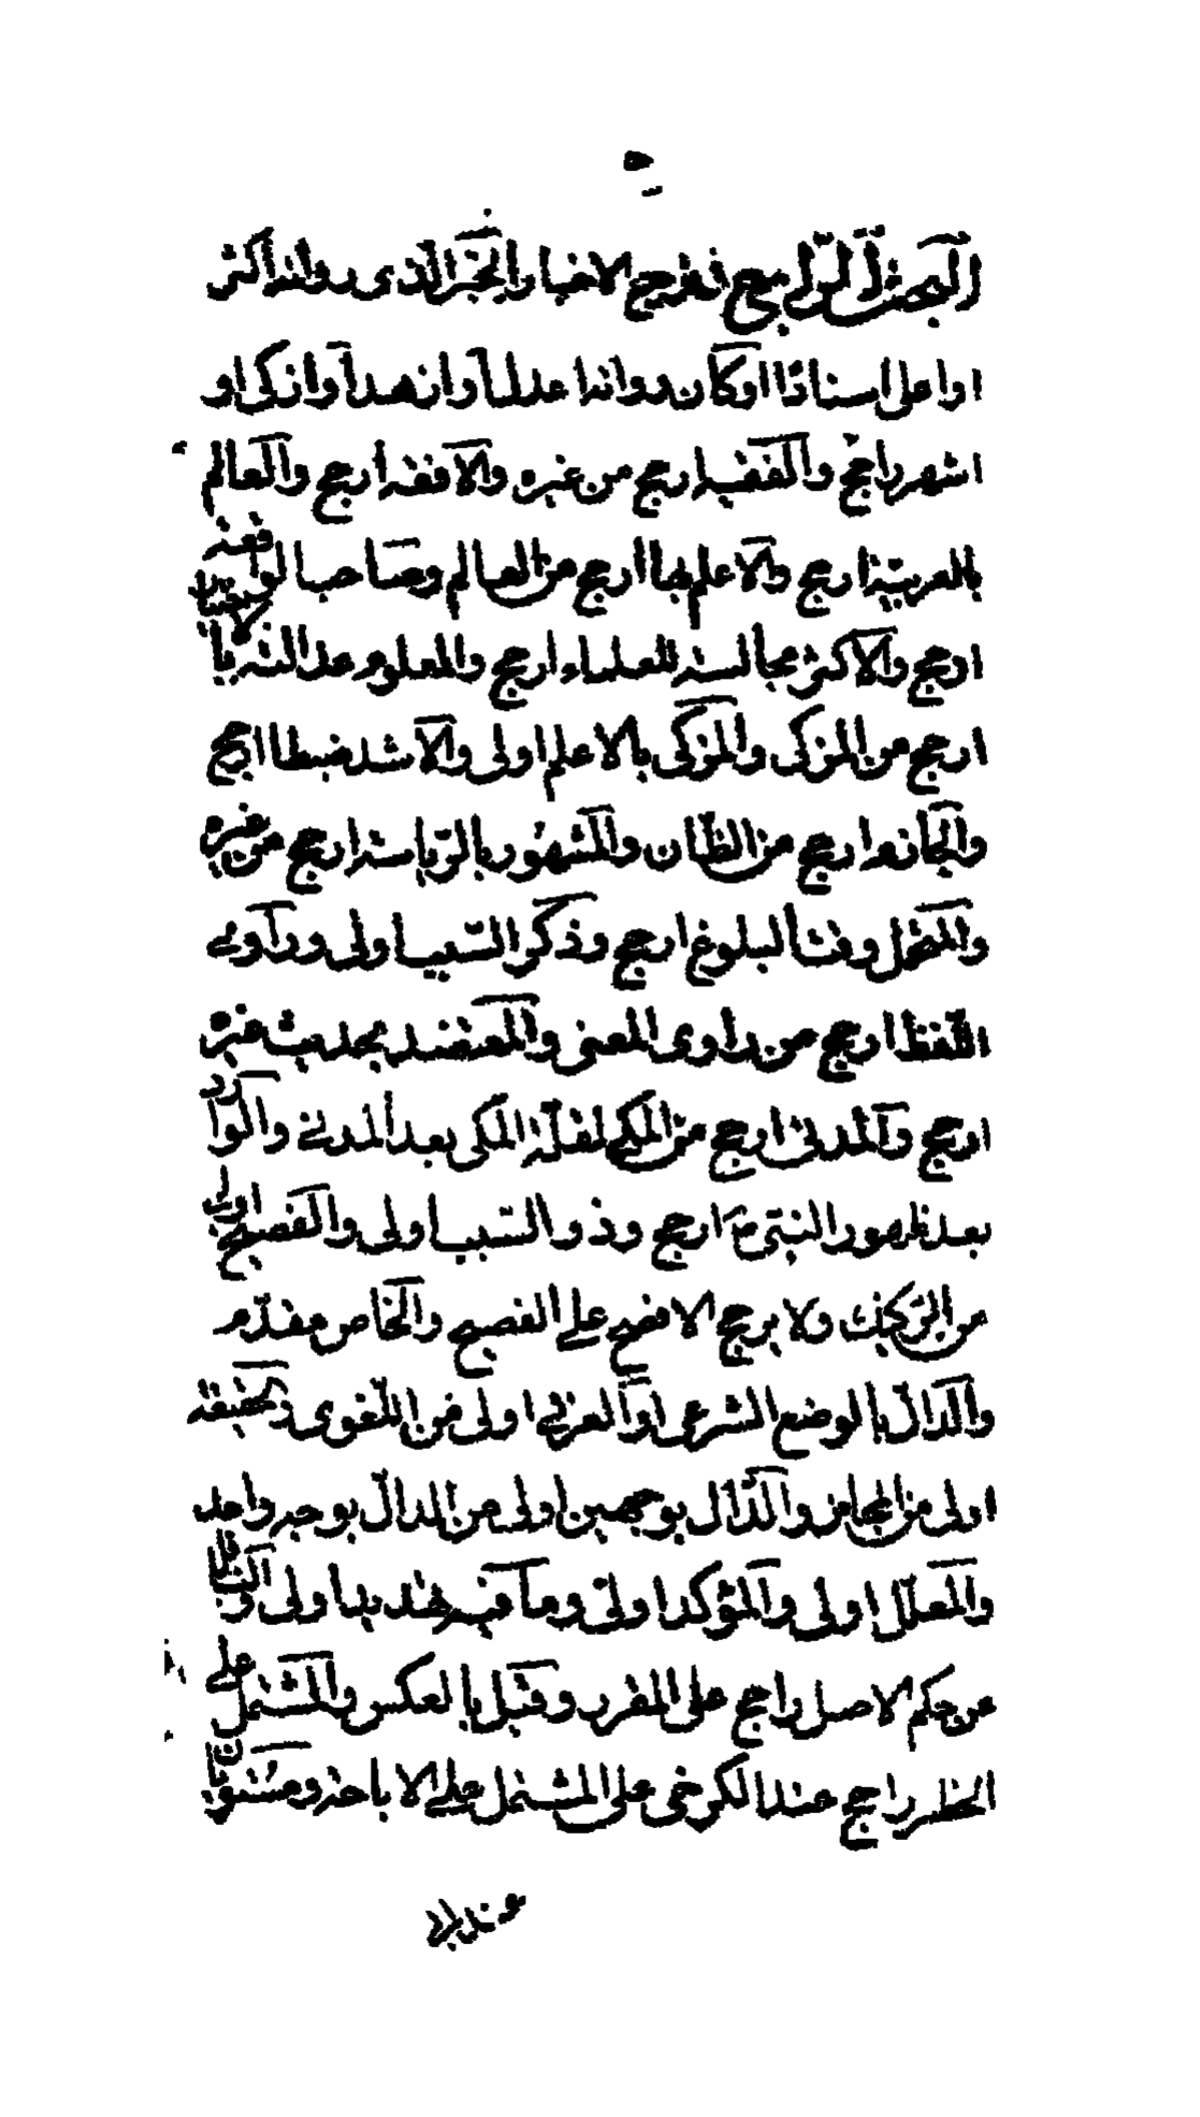 البحث الرابع في ترجيح الاخبار الخبر الذي رواته اكثر
او اعلى اسنادًا او كان رواته اعدل او ازهد او ازكى او
اشهر راجح والفقيه ارجح من غيره والافقه ارجح والعالم
بالعربية ارجح والاعلم بها ارجح من العالم وصاحب الواقعة
ارجح والاكثر مجالسة للعلماء ارجح والمعلوم عدالته بالاختبار
ارجح من المزكى والمزكى بالاعلم اولى والاشد ضبطا ارجح
والجازم ارجح من الظان والمشهور بالرياسة ارجح من غيره
والمتحمل وقت البلوغ ارجح وذكر السبب اولى وراوي
اللفظ ارجح من راوي المعنى والمعتضد بحديث غيره
ارجح والمدني ارجح من المكي لقلة المكي بعد المدني والوارد
بعد ظهور النبي ص ارجح وذو السبب اولى والفصيح اولى
من الركيك ولا يرجح الافصح على الفصيح والخاص مقدم
والدال بالوضع الشرعي او العرفي اولى من اللغوى والحقيقة
اولى من المجاز والدال بوجهين اولى من الدال بوجه واحد
والمعلل اولى والمؤكد اولى وما فيه تهديد اولى والناقل
عن حكم الاصل راجح على المقرر وقيل بالعكس والمشتمل على
الحظر راجح عند الكرخي على المشتمل على الاباحة ومستويان
عند